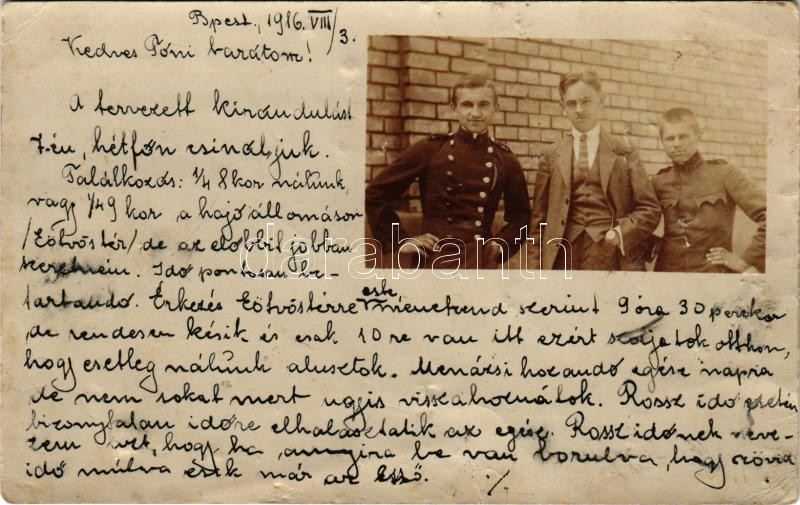 Bpest, 1916. VIII/3.
Kedves Tóni barátom!
A tervezett kirándulást
7-én, hétfőn csináljuk.
Találkozás: 1/4 8 kor nálunk,
vagy 1/4 9 kor a hajóállomáson
/Eötvöstér/ de az előbbit jobban
szeretném. Idő pontosan be-
tartandó. Érkezés Eötvöstérre este menetrend szerint 9 óra 30 perckor
de rendesen késik és csak 10 re van itt ezért szóljatok otthon,
hogy esetleg nálunk alusztok. Menázsi hozandó egész napra
de nem sokat mert ugyis visszahoznátok. Rossz idő esetén
bizonytalan időre elhalasztatik az egész. Rossz időnek neve-
zem azt, hogy ha annyira be van borulva, hogy rövid
idő múlva esik már az eső. ./.
darabanth